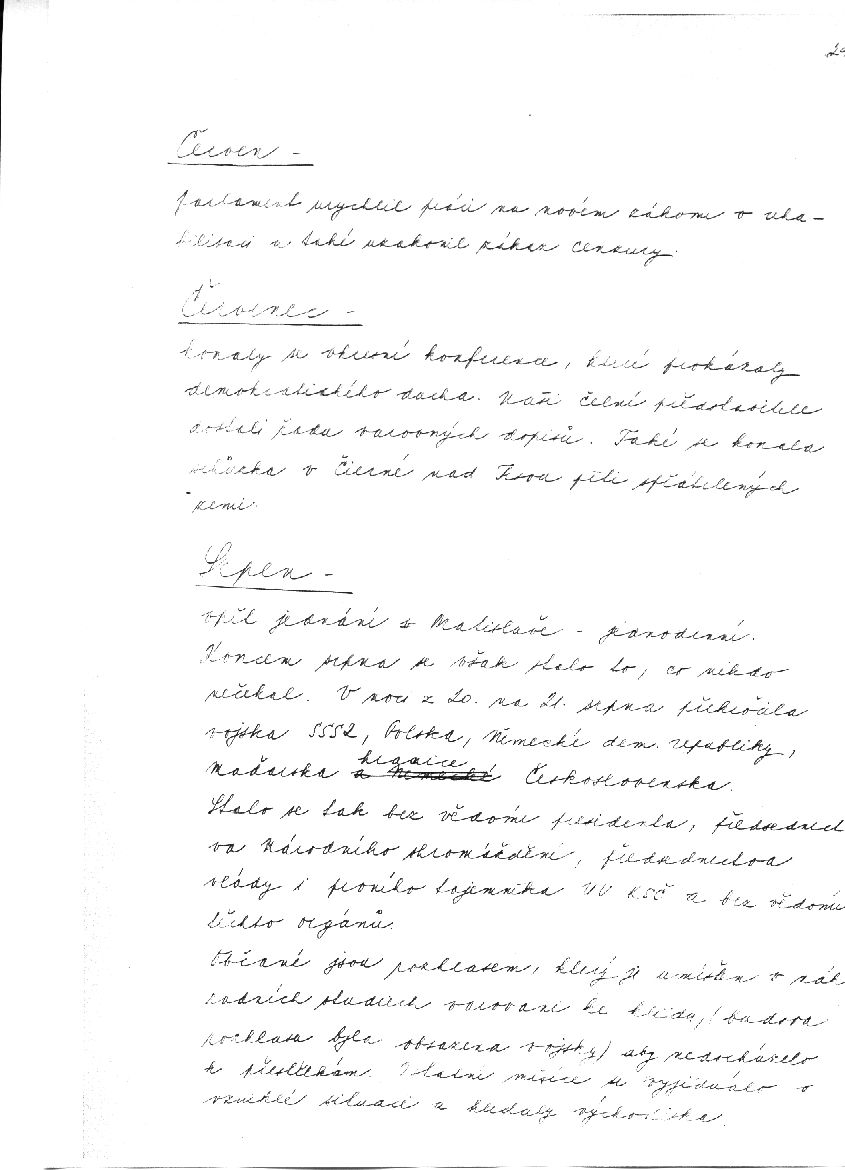 Červen -
parlament urychlil práci na novém zákonu o reha-
bilitaci a také uzákonil zákaz cenzury.
Červenec -
konaly se okresní konference, které prokázaly
demokratického ducha. Naši čelní představitelé
dostali řada varovných dopisů. Také se konala
schůzka v Čierné nad Tisou pěti spřátelených
zemí.
Srpen -
opět jednání v Bratislavě - jednodenní.
Koncem srpna se však stalo to, co nikdo
nečekal. V noci z 20. na 21. srpna překročila
vojska SSSR, Polska, Německé dem. republiky,
Maďarska a Německé hranice Československa.
Stalo se tak bez vědomí presidenta, předsednict
va Národního shromáždění, předsednictva
vlády i prvního tajemníka ÚV KSČ a bez vědomí
těchto orgánů.
Občané jsou rozhlasem, který je umístěn v náh
radních studiích varováni ke klidu, (budova
rozhlasu byla obsazena vojsky) aby nedocházelo
k přestřelkám. Vlastní měsíce se vyjednávalo o
vzniklé situaci a hledaly východiska.